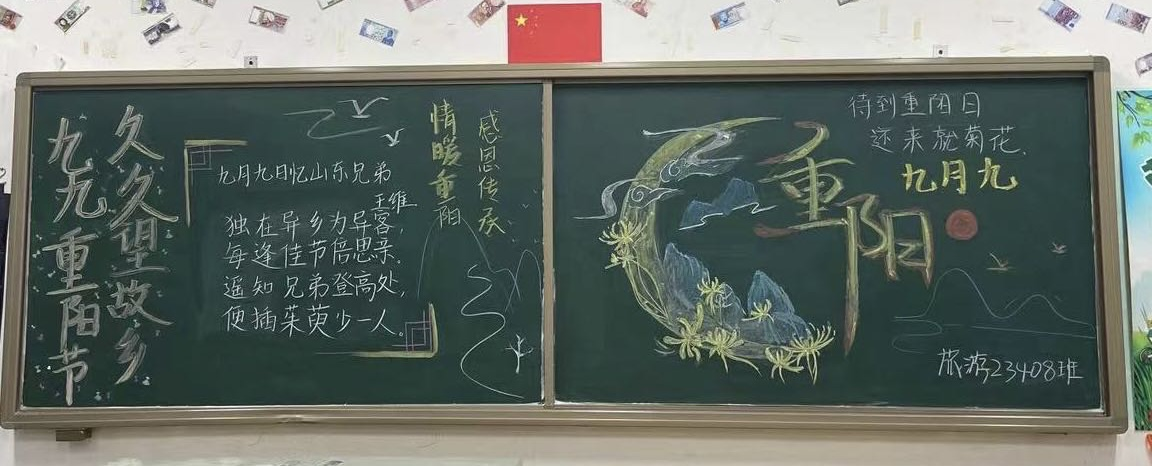 久久望故乡
九九重阳节
九月九日忆山东兄弟
王维
独在异乡为异客,
每逢佳节倍思亲.
遥知兄弟登高处,
便插茱萸少一人。
情暖重阳
感恩传承
重阳
待到重阳日
还来就菊花.
九月九
旅游23408班